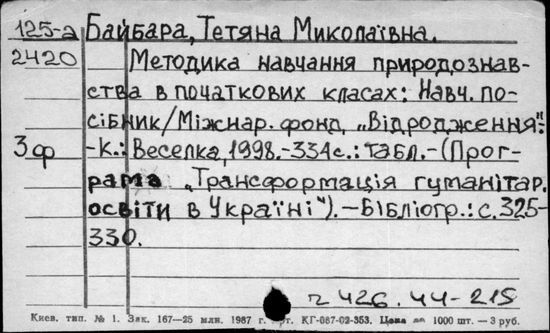 125-а Байбара, Тетяна Миколаївна.
2420 Методика навчання природознав-
ства в початкових класах: Навч. по-
сібник/Міжнар. фонд „Відродження".
3 ф -К.: Веселка, 1998.-334с.: табл.-(Прог-
рама „Трансформація гуманітар.
освіти в Україні").-Бібліогр.: с. 325-
330.
г 426.44-215
Киев. тип. № 1. Зак. 167—25 млн. 1987 г. Арт. КГ-087-02-353. Цена за 1000 шт. — 3 руб.